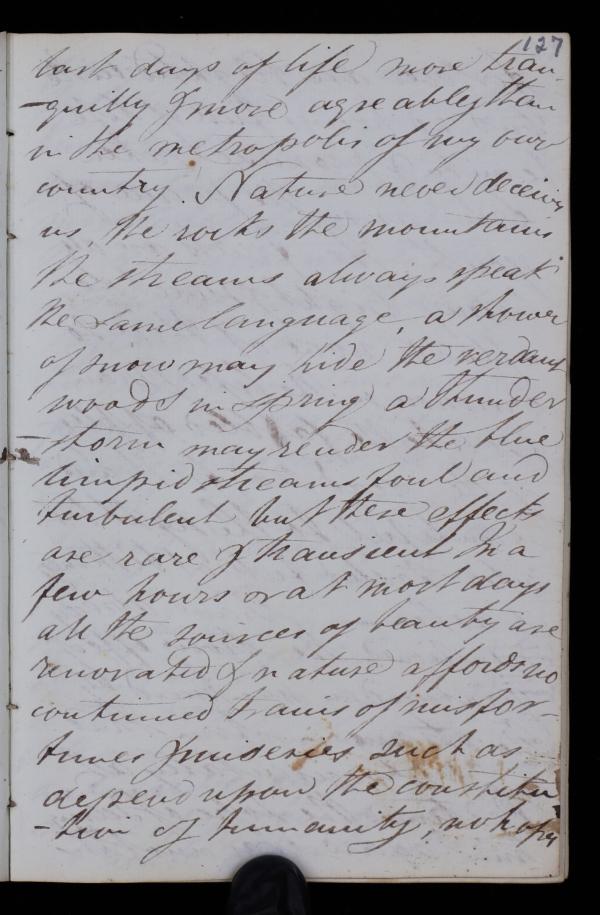 127
last days of life more tran-
-quilly & more agreably than
in the metropolis of my own
country. Nature never deceives
us, the rocks the mountains
the streams always speak
the same language, a shower
of snow may hide the verdant
woods in spring a thunder
-storm may render the blue
limpid streams foul and
turbulent but these effects
are rare & transient In a
few hours or at most days
all the sources of beauty are
renovated & nature affords no
continued trains of misfor-
tunes & miseries such as
depend upon the constitu
-tion of humanity, no hopes